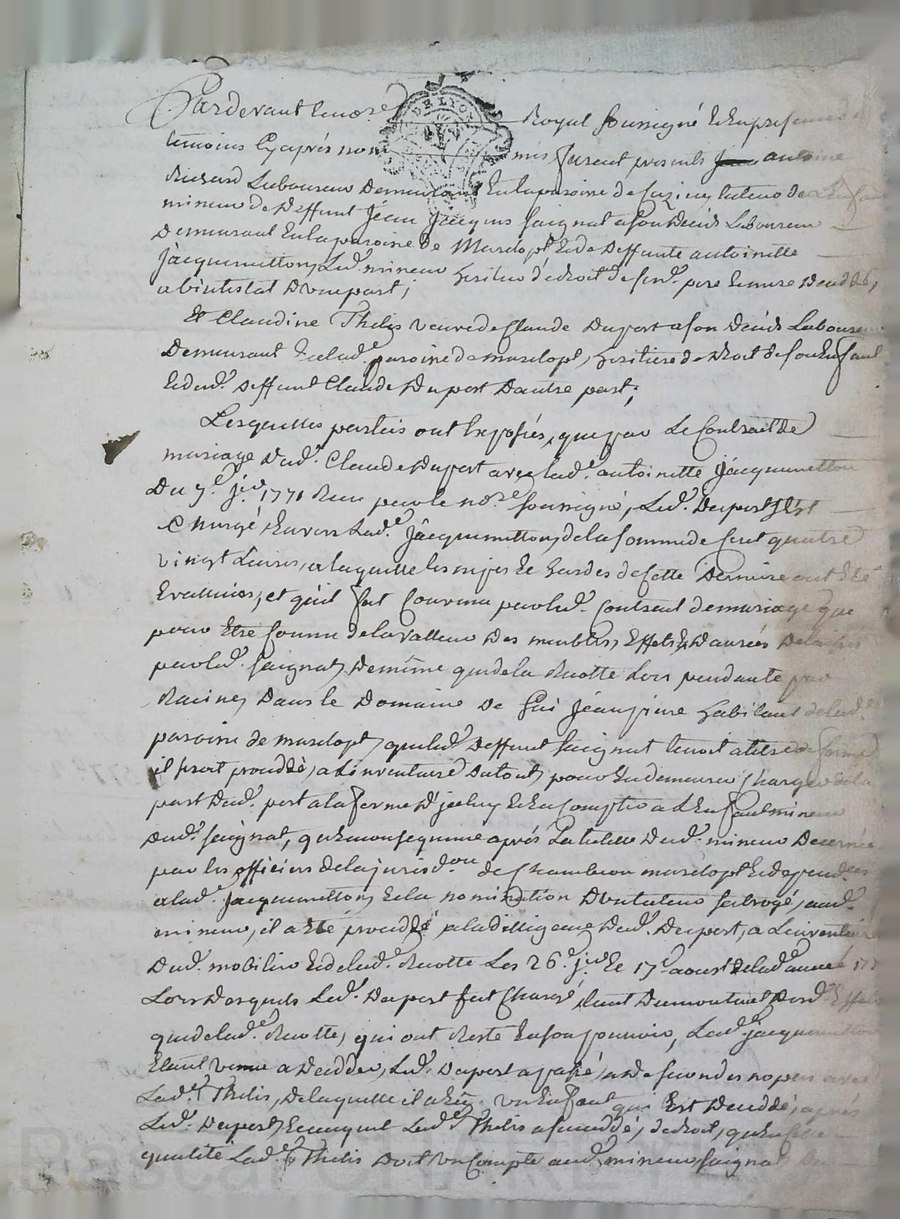 Pardevant le no.re Royal soussigné & en presence
temoins cy après nom mis furent presents antoine
Laboureur Demeurant En la paroisse de tuteur de
mineur de Deffunt Jean Jacques saignat a son Deceds Laboureur
Demeurant En la paroisse de Mardopt & de Deffunte antoinette
Jacquemetton, Led. mineur heritier de droit de ses d. pere & mere Deceddés,
abintestat D'une part;
Et Claudine Thelis veuve de Claude Duport a son Deceds Laboureur
Demeurant En lad. paroisse de mardopt, heritiere de Droit de son Enfant
& dud. Deffunt Claude Duport D'autre part;
Lesquelles parties ont Exposées, que par Le Contract de
mariage Dud. Claude Duport avec lad. antoinette Jacquemetton
Du 7.e j.er 1771 Recu par le no.re soussigné, Led. Duport s'Est
Chargé Envers Lad.e Jacquemetton, de la somme de Cent quatre
vingt Livres, a laquelle les nipes & hardes de Cette Derniere ont Eté
Evalluées, et qu'il fut Convenu par led. Contract de mariage que
pour Etre Connu de la valleur Des meubles, Effets & Danrées
par led. saignat, De même que de la Recotte Lors pendante par
Racines Dans le Domaine De Jean pierre habitant de lad.e
paroisse de mardopt, que led. Deffunt saignat tenoit a titre de ferme
il seroit proceddé, a L'inventaire Du tout, pour En demeurer Chargé de la
part Dud. port a la forme D'jceluy & En Compter a L'Enfant mineur
Dud. saignat, qu'En consequence après La tutelle Dud. mineur Decernée
par les officiers de la jurisd.on de Chambeon mardopt & dependces
a lad. Jacquemetton, & la nomination D'un tuteur subrogé, aud.
mineur, il a Eté proceddé a la dilligence Dud. Duport, a L'inventaire
Dud. mobilier & de lad. Recotte Les 26.e & 17.e aoust de lad.e année 177
Lors Desquels Led. Duport fut Chargé, tant Du montant Desd. Effets
que de lad.e Recotte, qui ont Resté En son pouvoir, Lad.e jacquemetton
Etant venue a Decedder, Led. Duport a passé, a De secondes nopces avec
Lad.e Thelis, De laquelle il a Eu un Enfant qui Est Deceddé, après
Led. Duport, Et auquel Lad.e Thelis a succeddé, de droit, qu'En
qualité Lad.e Thelis Doit un Compte aud. mineur saignat